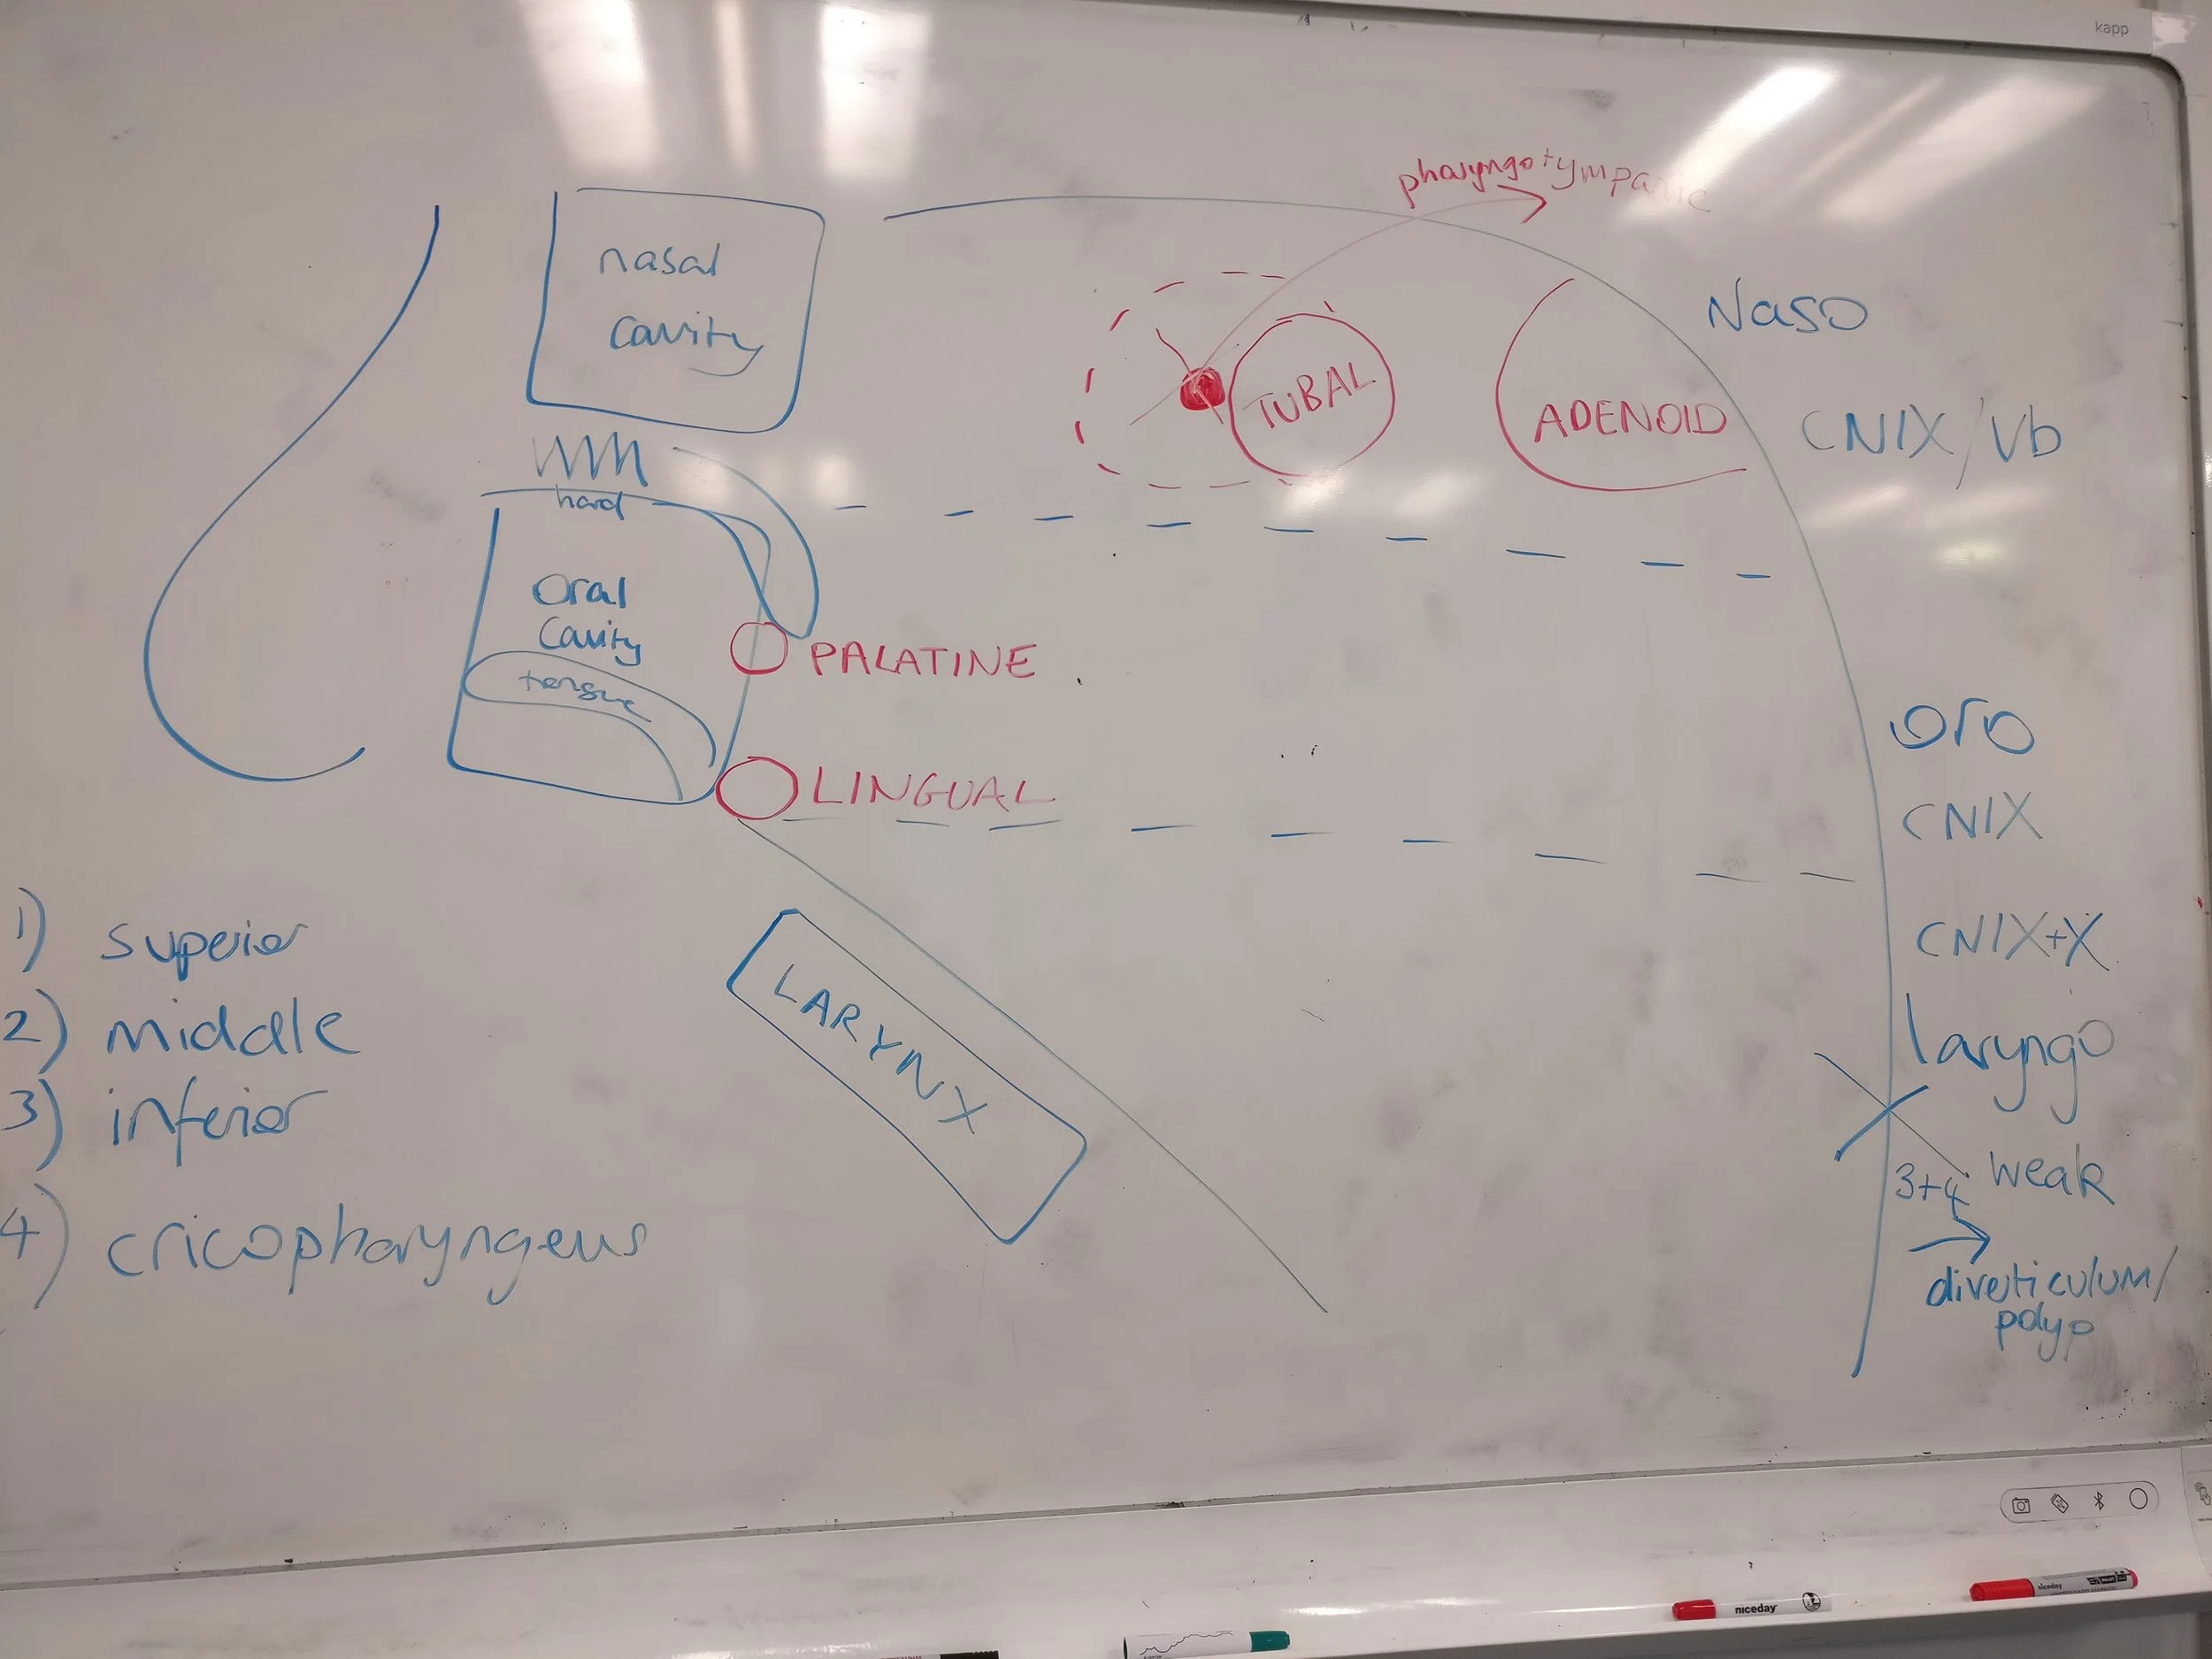 kapp
pharyngotympanic
nasal
cavity
Naso
TUBAL
ADENOID
CNIX/Vb
hard
Oral
Cavity
tongue
PALATINE
LINGUAL
oro
CNIX
CNIX+X
laryngo
LARYNX
3+4 weak
diverticulum/
polyp
1) superior
2) middle
3) inferior
4) cricopharyngeus
niceday
niceday